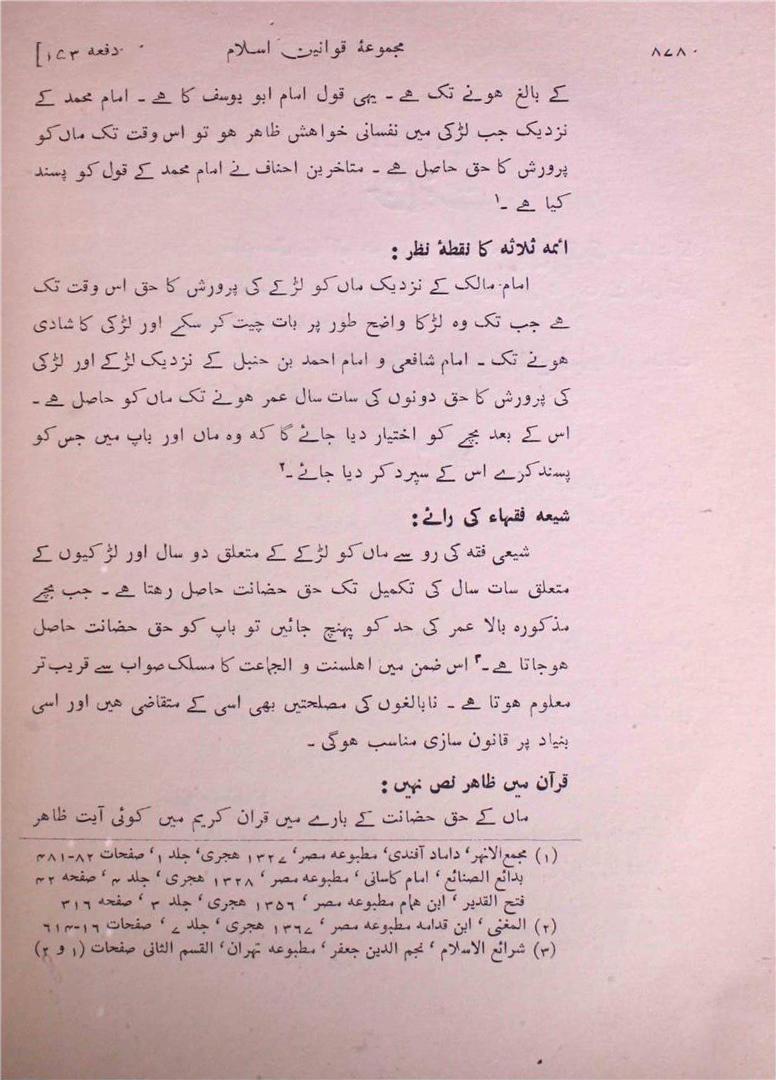 ۸۷۸ مجموعۂ قوانین اسلام دفعہ ۱۴۳]
کے بالغ ہونے تک ہے ۔ یہی قول امام ابو یوسف کا ہے ۔ امام محمد کے
نزدیک جب لڑکی میں نفسانی خواہش ظاہر ہو تو اس وقت تک ماں کو
پرورش کا حق حاصل ہے ۔ متاخرین احناف نے امام محمد کے قول کو پسند
کیا ہے ۔۱
ائمہ ثلاثہ کا نقطۂ نظر :
امام مالک کے نزدیک ماں کو لڑکے کی پرورش کا حق اس وقت تک
ہے جب تک وہ لڑکا واضح طور پر بات چیت کر سکے اور لڑکی کا شادی
ہونے تک ۔ امام شافعی و امام احمد بن حنبل کے نزدیک لڑکے اور لڑکی
کی پرورش کا حق دونوں کی سات سال عمر ہونے تک ماں کو حاصل ہے ۔
اس کے بعد بچے کو اختیار دیا جائے گا کہ وہ ماں اور باپ میں جس کو
پسند کرے اس کے سپرد کر دیا جائے ۔۲
شیعہ فقہاء کی رائے :
شیعی فقہ کی رو سے ماں کو لڑکے کے متعلق دو سال اور لڑکیوں کے
متعلق سات سال کی تکمیل تک حق حضانت حاصل رہتا ہے ۔ جب بچے
مذکورہ بالا عمر کی حد کو پہنچ جائیں تو باپ کو حق حضانت حاصل
ہو جاتا ہے ۔۳ اس ضمن میں اہلسنت و الجماعت کا مسلک صواب سے قریب تر
معلوم ہوتا ہے ۔ نابالغوں کی مصلحتیں بھی اسی کے متقاضی ہیں اور اسی
بنیاد پر قانون سازی مناسب ہوگی ۔
قرآن میں ظاہر نص نہیں :
ماں کے حق حضانت کے بارے میں قران کریم میں کوئی آیت ظاہر
(۱) مجمع الانہر، داماد آفندی، مطبوعہ مصر، ۱۳۲۷ ہجری، جلد ۱، صفحات ۸۲-۴۸۱
بدائع الصنائع، امام کاسانی، مطبوعہ مصر، ۱۳۲۸ ہجری، جلد ۴، صفحہ ۴۲
فتح القدیر، ابن ہمام مطبوعہ مصر، ۱۳۵۶ ہجری، جلد ۳، صفحہ ۳۱۶
(۲) المغنی، ابن قدامہ مطبوعہ مصر، ۱۳۶۷ ہجری، جلد ۷، صفحات ۱۶-۶۱۴
(۳) شرائع الاسلام، نجم الدین جعفر، مطبوعہ تہران، القسم الثانی صفحات (۱ و ۲)